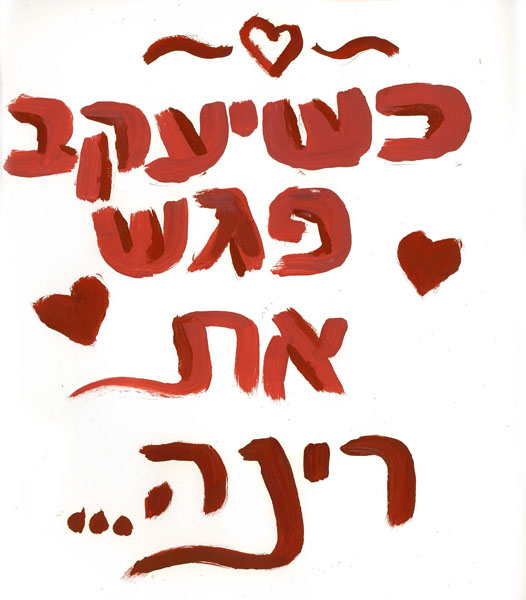 כשיעקב
פגש
את
רינה...